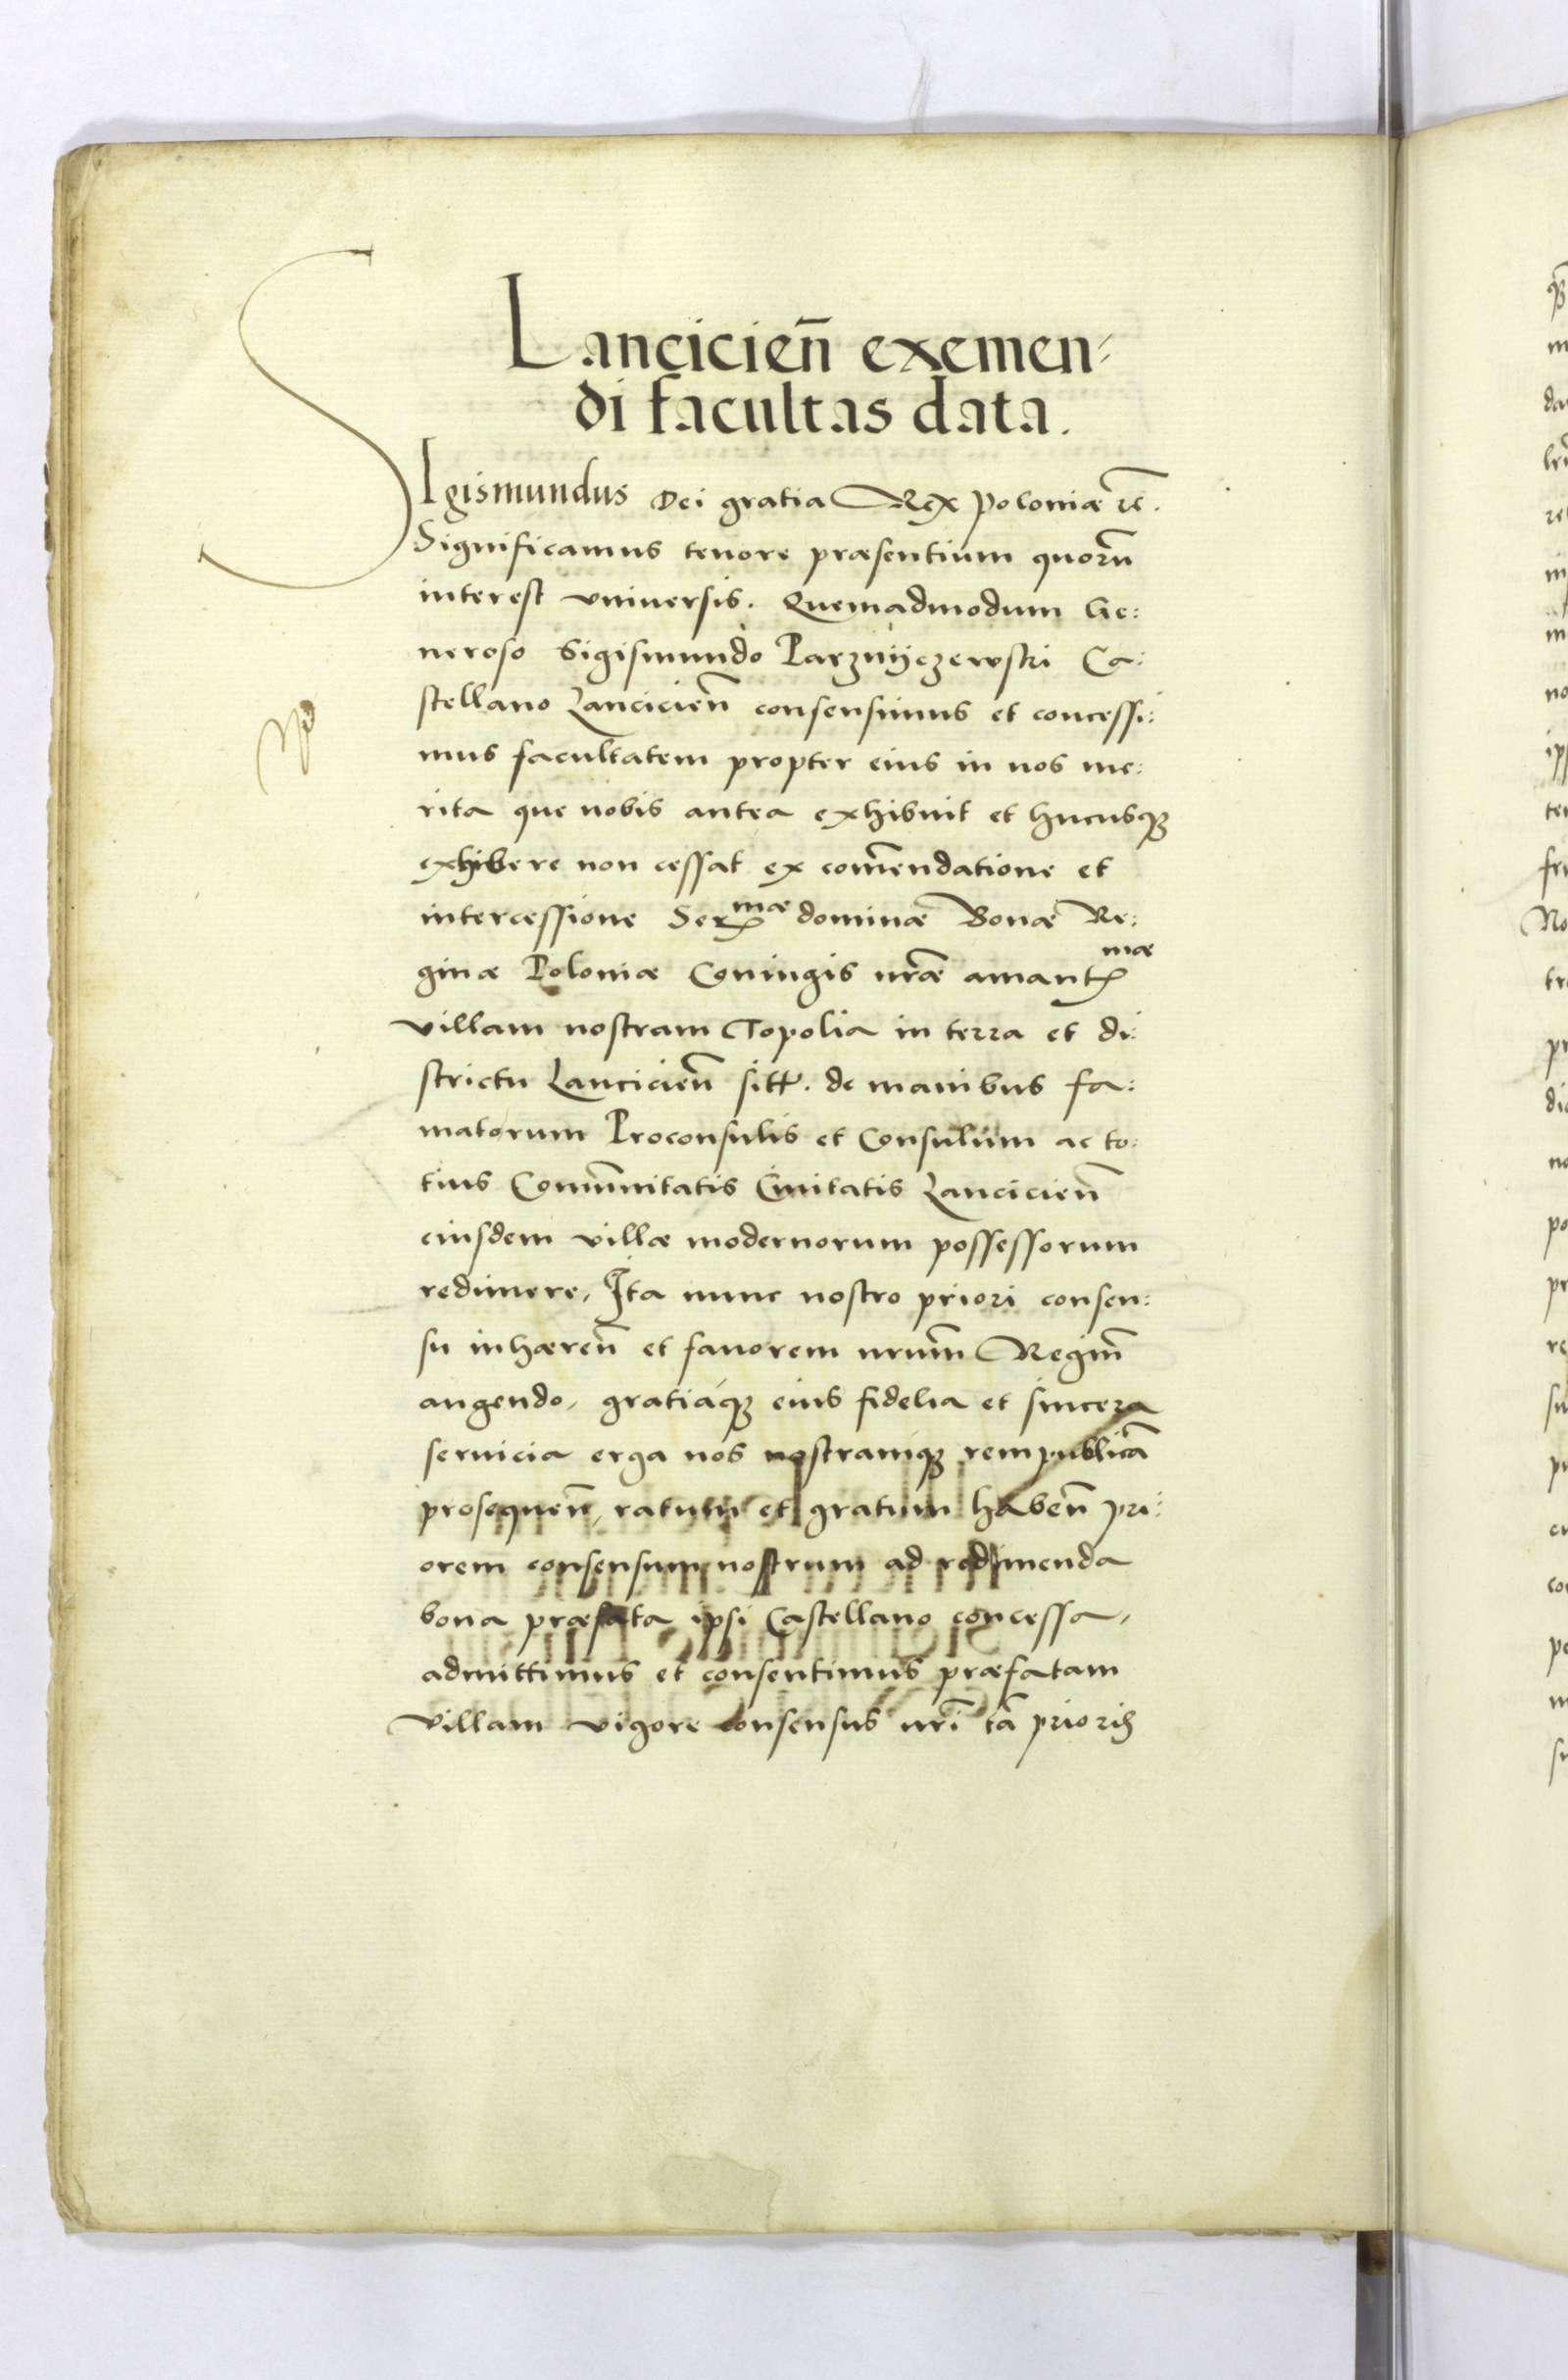 Lancicien̄ exemen-
di facultas data.
SIgismundus Dei gratia Rex Poloniæ rc̄.
Significamus tenore præsentium quorū
interest vniuersis. Quemadmodum Ge:
neroso Sigismundo Parznÿczewski Ca:
stellano Lancicien̄ consensimus et concessi:
mus facultatem propter eius in nos me:
rita que nobis antea exhibuit et hucusqꝫ
exhibere non cessat ex com̄endatione et
intercessione Ser^mæ dominæ Bonæ Re:
ginæ Poloniæ Coniugis nr̄æ amant^mæ
villam nostram Topolia in terra et di:
strictu Lancicien̄ sitt. de manibus fa:
matorum Proconsulis et Consulum ac to:
tius Com̄unitatis Ciuitatis Lancicien̄
eiusdem villæ modernorum possessorum
redimere, Ita nunc nostro priori consen:
su inhæren̄ et fauorem nr̄um Regiū
augendo, gratiáqꝫ eius fidelia et sincera
seruicia erga nos nostramqꝫ rempublicā
prosequen̄, ratum et gratum haben̄ pri:
orem consensum nostrum ad redimenda
bona præfata ipsi Castellano concessa,
admittimus et consentimus præfatam
villam vigore consensus nr̄i tā prioris